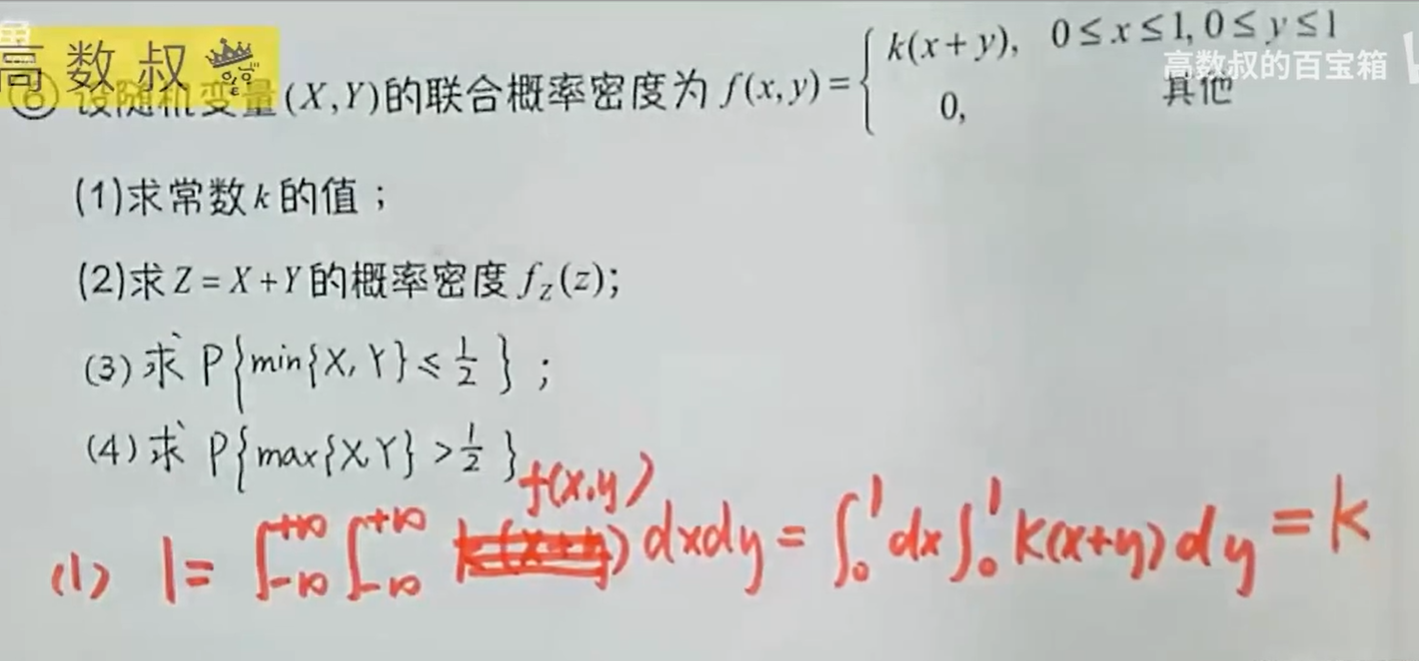 高数叔
高数叔的百宝箱
⑥ 设随机变量(X,Y)的联合概率密度为 f(x,y)={ k(x+y), 0≤x≤1,0≤y≤1
0, 其他
(1)求常数k的值；
(2)求Z=X+Y的概率密度f_Z(z);
(3) 求 P{min{X,Y}≤1/2}；
(4) 求 P{max{X,Y}>1/2}
(1) 1=∫_{-∞}^{+∞}∫_{-∞}^{+∞} f(x,y) dxdy=∫_0^1 dx∫_0^1 k(x+y)dy=k